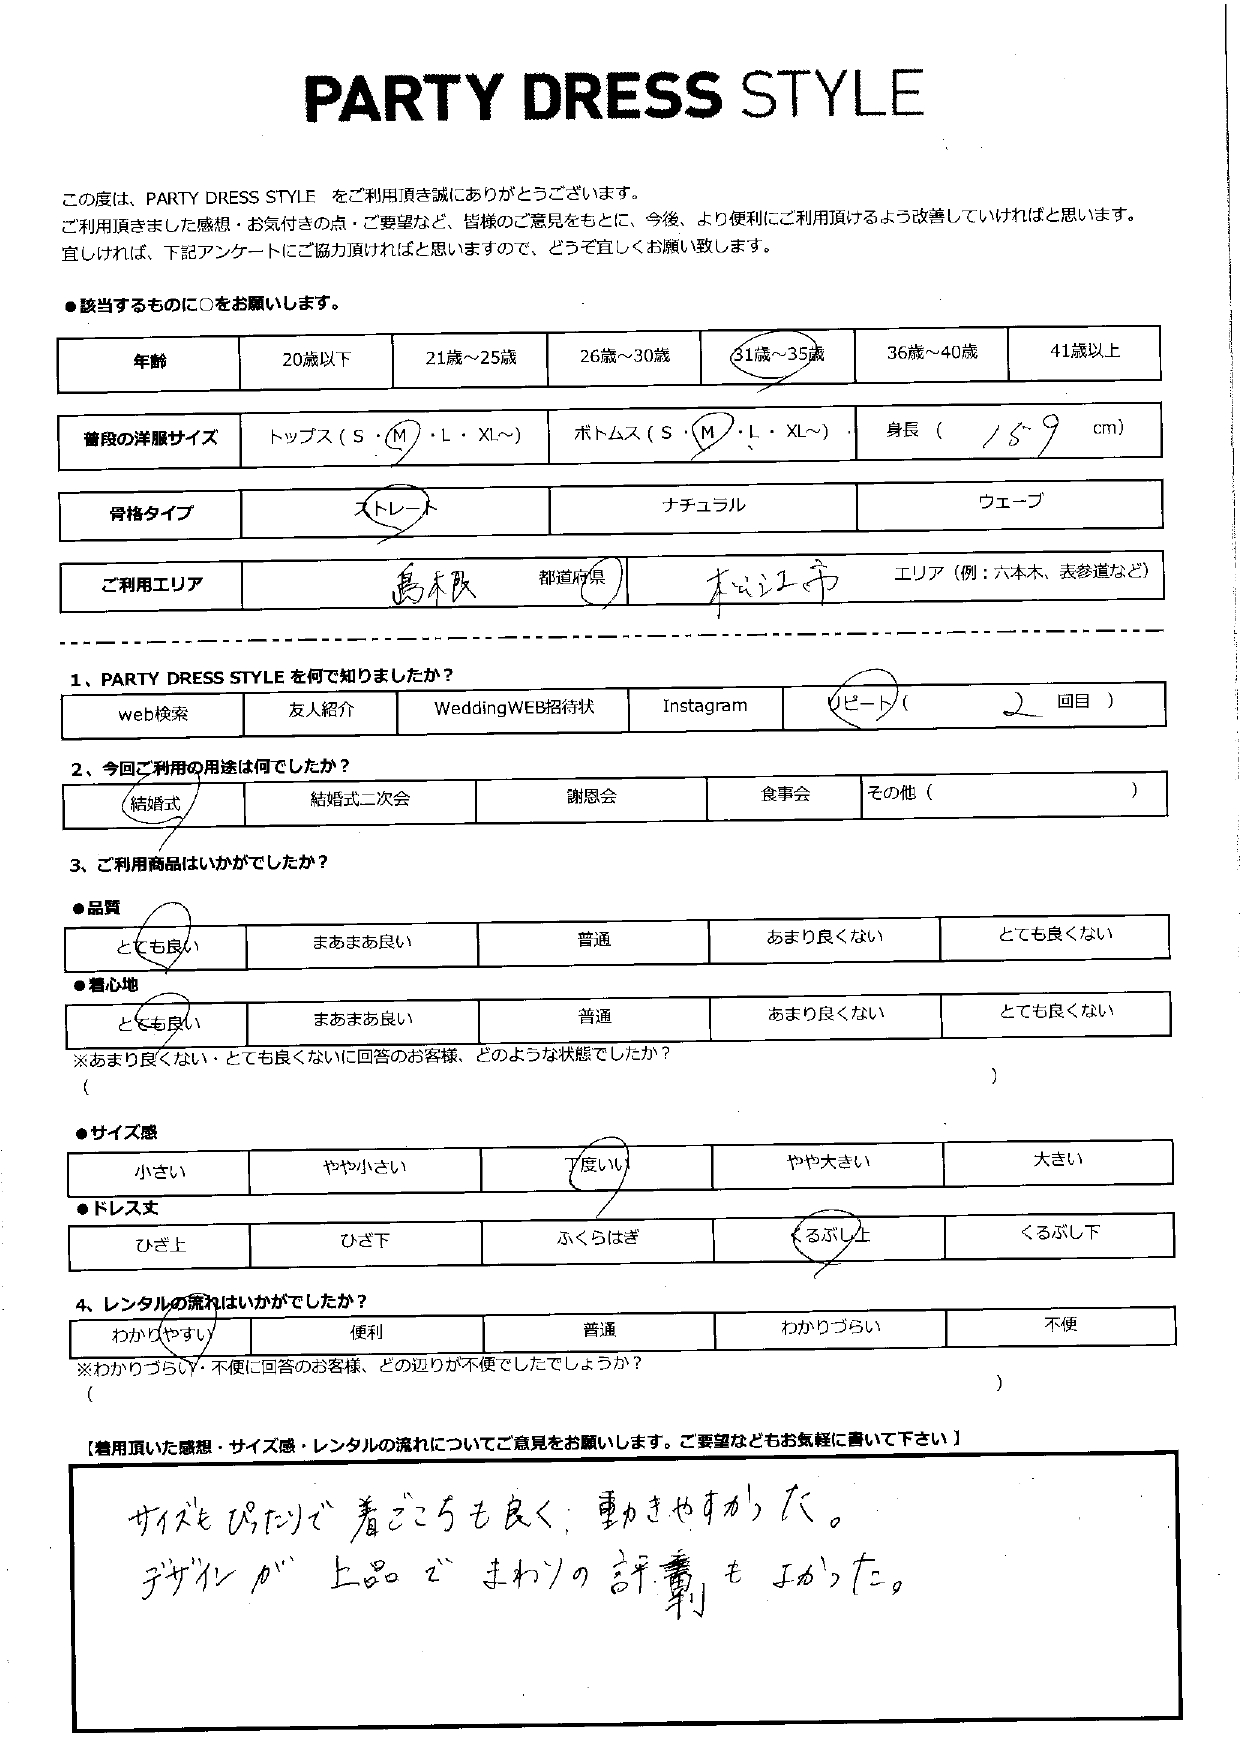 PARTY DRESS STYLE
この度は、PARTY DRESS STYLE をご利用頂き誠にありがとうございます。
ご利用頂きました感想・お気付きの点・ご要望など、皆様のご意見をもとに、今後、より便利にご利用頂けるよう改善していければと思います。
宜しければ、下記アンケートにご協力頂ければと思いますので、どうぞ宜しくお願い致します。
●該当するものに○をお願いします。
年齢 20歳以下 21歳～25歳 26歳～30歳 31歳～35歳 36歳～40歳 41歳以上
普段の洋服サイズ トップス（ S ・ M ・ L ・ XL～） ボトムス（ S ・ M ・ L ・ XL～） 身長 （ 159 cm）
骨格タイプ ストレート ナチュラル ウェーブ
ご利用エリア 島根 都道府県 松江市 エリア（例：六本木、表参道など）
1、PARTY DRESS STYLE を何で知りましたか？
web検索 友人紹介 WeddingWEB招待状 Instagram リピート（ 2 回目 ）
2、今回ご利用の用途は何でしたか？
結婚式 結婚式二次会 謝恩会 食事会 その他（ ）
3、ご利用商品はいかがでしたか？
●品質
とても良い まあまあ良い 普通 あまり良くない とても良くない
●着心地
とても良い まあまあ良い 普通 あまり良くない とても良くない
※あまり良くない・とても良くないに回答のお客様、どのような状態でしたか？
（ ）
●サイズ感
小さい やや小さい 丁度いい やや大きい 大きい
●ドレス丈
ひざ上 ひざ下 ふくらはぎ くるぶし上 くるぶし下
4、レンタルの流れはいかがでしたか？
わかりやすい 便利 普通 わかりづらい 不便
※わかりづらい・不便に回答のお客様、どの辺りが不便でしたでしょうか？
（ ）
【着用頂いた感想・サイズ感・レンタルの流れについてご意見をお願いします。ご要望などもお気軽に書いて下さい 】
サイズもぴったりで 着ごこちも良く、動きやすかった。
デザインが 上品で まわりの 評判も よかった。